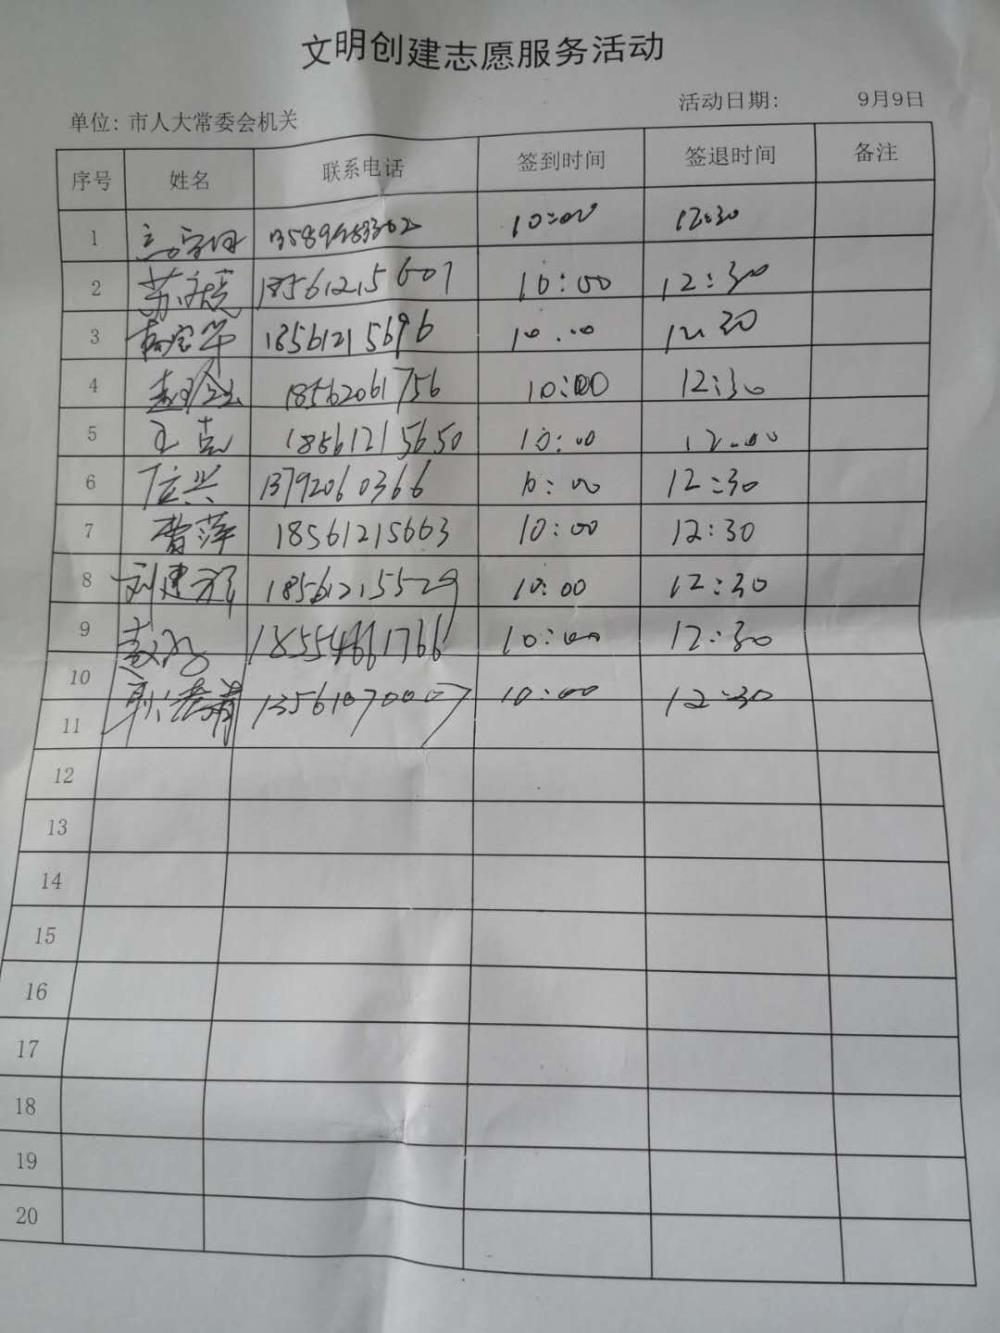 文明创建志愿服务活动
单位：市人大常委会机关 活动日期： 9月9日
序号 姓名 联系电话 签到时间 签退时间 备注
1 10:00 12:30
2 18561215607 10:00 12:30
3 18561215696 10:00 12:30
4 18562061756 10:00 12:30
5 王克 18561215650 10:00 12:00
6 位兴 13792060366 10:00 12:30
7 曹萍 18561215663 10:00 12:30
8 刘建 18561215529 10:00 12:30
9 18554661766 10:00 12:30
10 13561070007 10:00 12:30
11
12
13
14
15
16
17
18
19
20